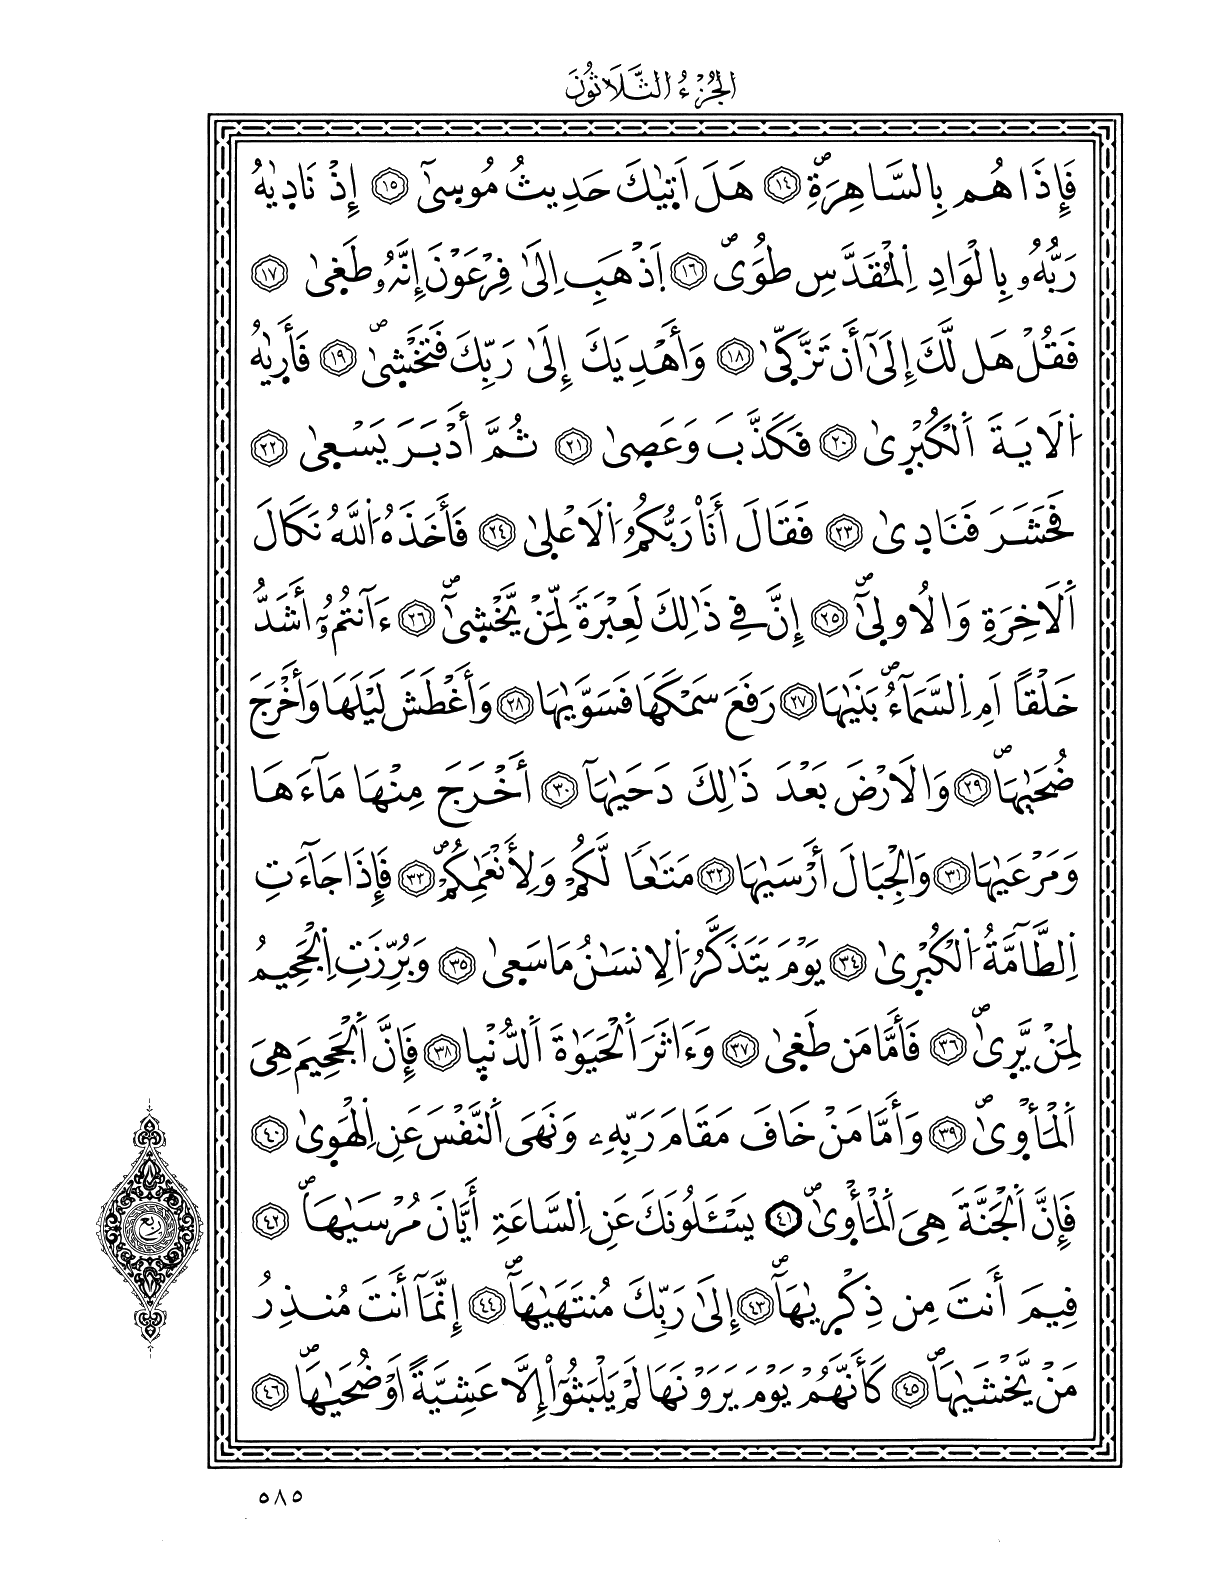 الجُزْءُ الثَّلَاثُونَ
فَإِذَا هُم بِالسَّاهِرَةِۖ ١٤ هَلَ اَتٜيٰكَ حَدِيثُ مُوسٜىٰٓ ١٥ إِذْ نَادٜيٰهُ
رَبُّهُۥ بِالْوَادِ اِ۬لْمُقَدَّسِ طُوَىۖ ١٦ اَ۪ذْهَبِ اِلَىٰ فِرْعَوْنَ إِنَّهُۥ طَغٜىٰ ١٧
فَقُلْ هَل لَّكَ إِلَىٰٓ أَن تَزَّكّٜىٰ ١٨ وَأَهْدِيَكَ إِلَىٰ رَبِّكَ فَتَخْشٜىٰۖ ١٩ فَأَرٜيٰهُ
اُ۬لَايَةَ اَ۬لْكُبْرٜىٰ ٢٠ فَكَذَّبَ وَعَصٜىٰ ٢١ ثُمَّ أَدْبَرَ يَسْعٜىٰ ٢٢
فَحَشَرَ فَنَادٜىٰ ٢٣ فَقَالَ أَنَا۠ رَبُّكُمُ اُ۬لَاعْلٜىٰ ٢٤ فَأَخَذَهُ اُ۬للَّهُ نَكَالَ
اَ۬لَاخِرَةِ وَالُاولٜىٰٓۖ ٢٥ إِنَّ فِے ذَٰلِكَ لَعِبْرَةٗ لِّمَنْ يَّخْشٜىٰٓۖ ٢٦ ءَآنتُمُۥٓ أَشَدُّ
خَلْقاً اَمِ اِ۬لسَّمَآءُۖ بَنٜيٰهَا ٢٧ رَفَعَ سَمْكَهَا فَسَوّٜيٰهَا ٢٨ وَأَغْطَشَ لَيْلَهَا وَأَخْرَجَ
ضُحٜيٰهَاۖ ٢٩ وَالَارْضَ بَعْدَ ذَٰلِكَ دَحٜيٰهَآ ٣٠ أَخْرَجَ مِنْهَا مَآءَهَا
وَمَرْعٜيٰهَا ٣١ وَالْجِبَالَ أَرْسٜيٰهَا ٣٢ مَتَٰعاٗ لَّكُمْ وَلِأَنْعَٰمِكُمْۖ ٣٣ فَإِذَا جَآءَتِ
اِ۬لطَّآمَّةُ اُ۬لْكُبْرٜىٰ ٣٤ يَوْمَ يَتَذَكَّرُ اُ۬لِانسَٰنُ مَا سَعٜىٰ ٣٥ وَبُرِّزَتِ اِ۬لْجَحِيمُ
لِمَنْ يَّرٜىٰۖ ٣٦ فَأَمَّا مَن طَغٜىٰ ٣٧ وَءَاثَرَ اَ۬لْحَيَوٰةَ اَ۬لدُّنْيٜا ٣٨ فَإِنَّ اَ۬لْجَحِيمَ هِىَ
اَ۬لْمَأْوٜىٰۖ ٣٩ وَأَمَّا مَنْ خَافَ مَقَامَ رَبِّهِۦ وَنَهَى اَ۬لنَّفْسَ عَنِ اِ۬لْهَوٜىٰ ٤٠
فَإِنَّ اَ۬لْجَنَّةَ هِىَ اَ۬لْمَأْوٜىٰۖ ٤١ يَسْـَٔلُونَكَ عَنِ اِ۬لسَّاعَةِ أَيَّانَ مُرْسٜيٰهَاۖ ٤٢
فِيمَ أَنتَ مِن ذِكْرٜيٰهَآۖ ٤٣ إِلَىٰ رَبِّكَ مُنتَهٜيٰهَآۖ ٤٤ إِنَّمَآ أَنتَ مُنذِرُ
مَنْ يَّخْشٜيٰهَاۖ ٤٥ كَأَنَّهُمْ يَوْمَ يَرَوْنَهَا لَمْ يَلْبَثُوٓاْ إِلَّا عَشِيَّةً اَوْ ضُحٜيٰهَاۖ ٤٦
ربع
٥٨٥